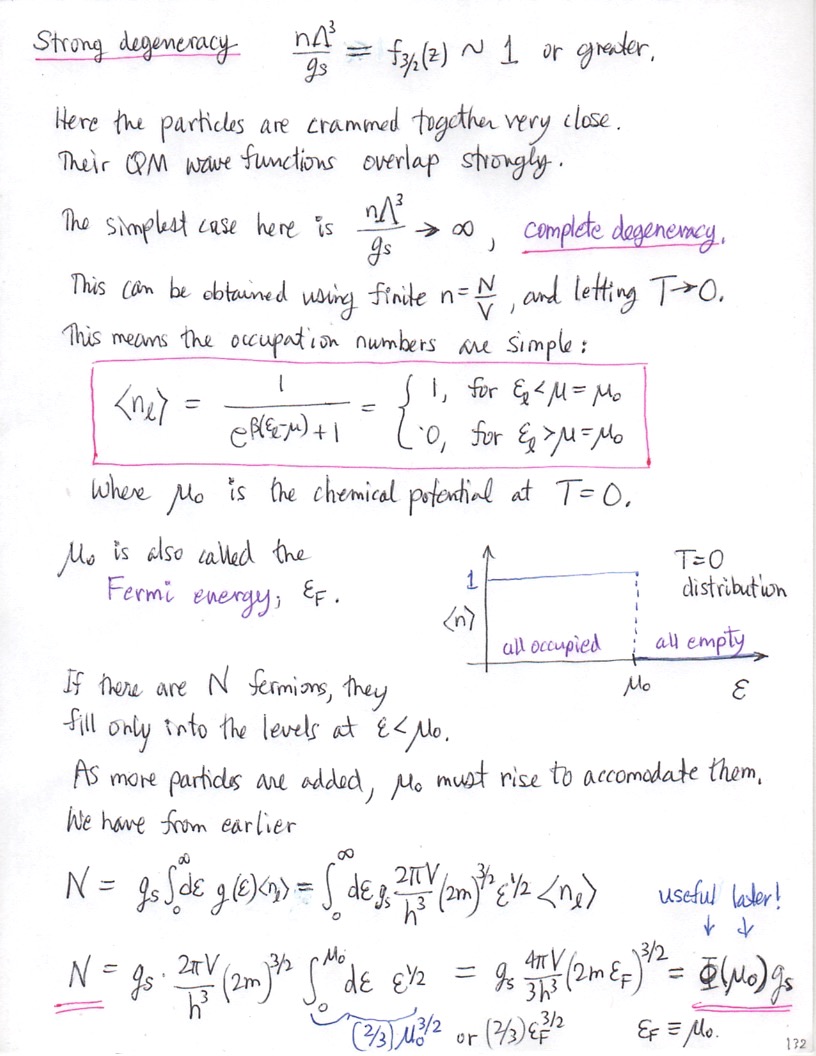 Strong degeneracy nΛ³/gs = f3/2(z) ~ 1 or greater.
Here the particles are crammed together very close.
Their QM wave functions overlap strongly.
The simplest case here is nΛ³/gs → ∞, complete degeneracy.
This can be obtained using finite n = N/V, and letting T→0.
This means the occupation numbers are simple:
⟨nℓ⟩ = 1/(e^β(εℓ-μ) + 1) = { 1, for εℓ < μ = μ₀
0, for εℓ > μ = μ₀
Where μ₀ is the chemical potential at T = 0.
μ₀ is also called the
Fermi energy, εF.
1
⟨n⟩
T=0
distribution
all occupied
all empty
μ₀
ε
If there are N fermions, they
fill only into the levels at ε < μ₀.
As more particles are added, μ₀ must rise to accomodate them.
We have from earlier
N = gs ∫₀^∞ dε g(ε)⟨nℓ⟩ = ∫₀^∞ dε gs 2πV/h³ (2m)^3/2 ε^1/2 ⟨nℓ⟩
useful later!
↓ ↓
N = gs · 2πV/h³ (2m)^3/2 ∫₀^μ₀ dε ε^1/2 = gs 4πV/3h³ (2m εF)^3/2 = Φ(μ₀) gs
(2/3) μ₀^3/2 or (2/3) εF^3/2 εF ≡ μ₀.
132